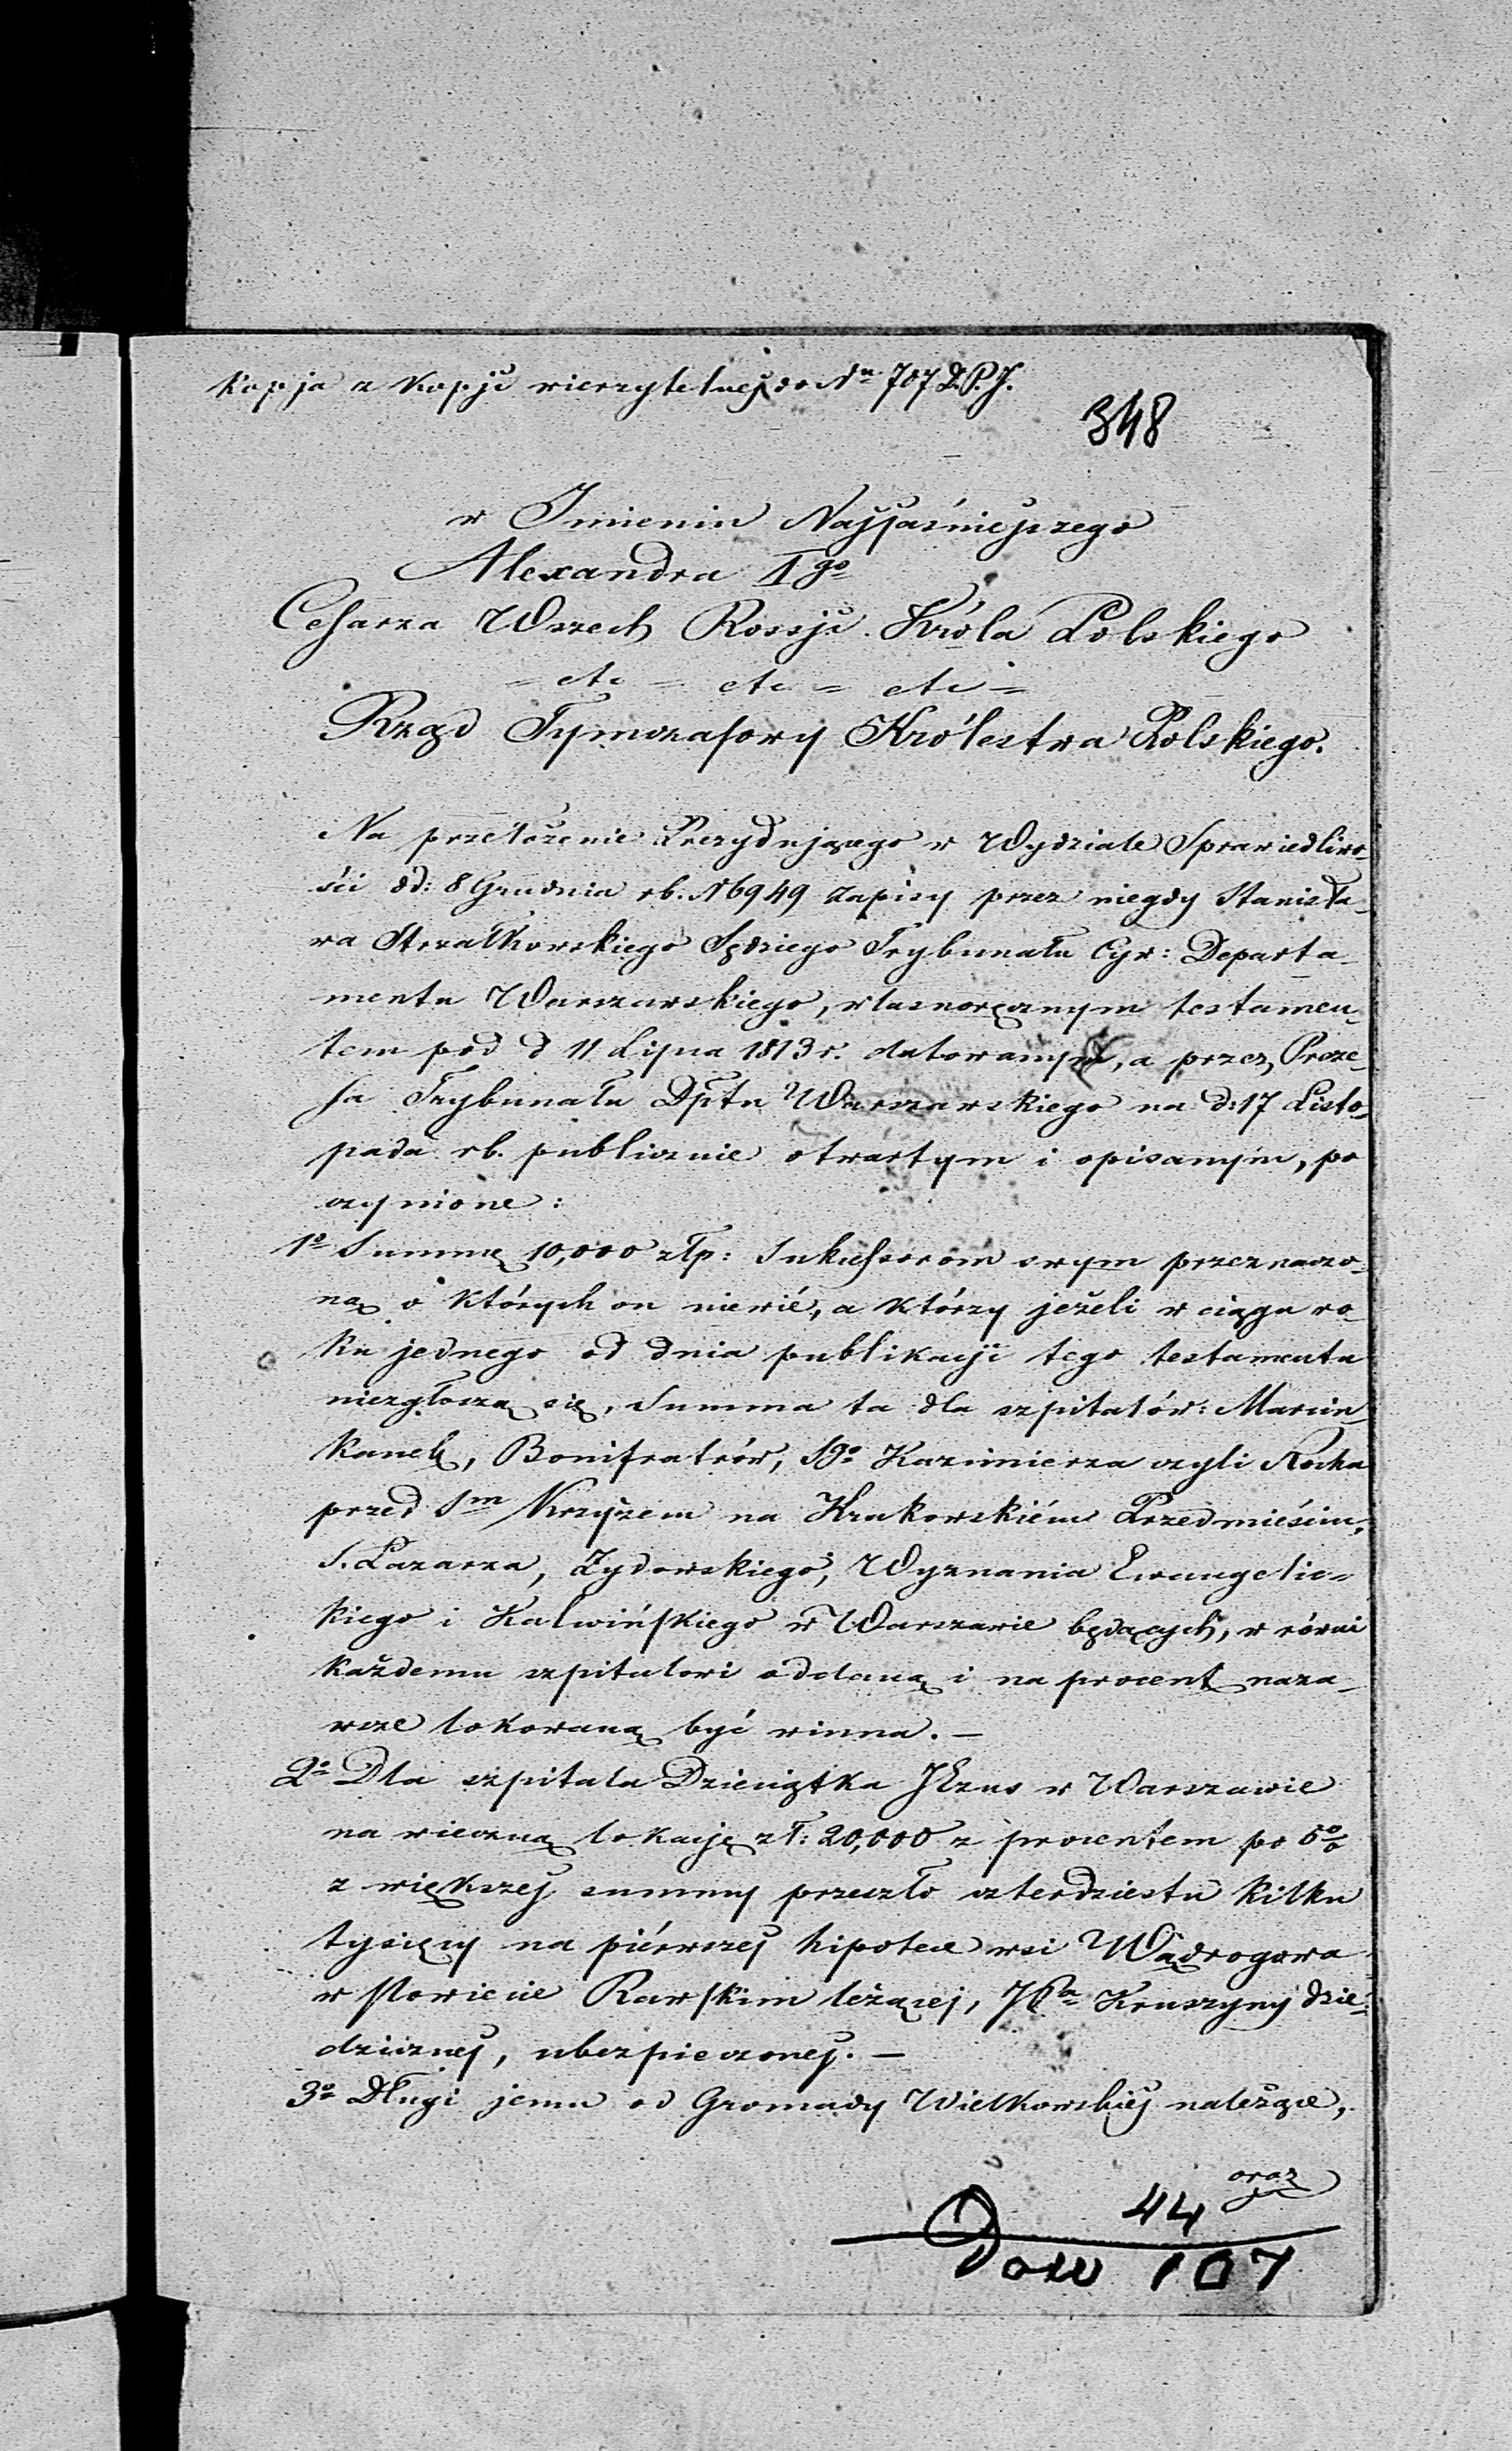 Kopja z Kopji wierzytelnej do Nru 707 D.P.J.
348
w Imieniu Najjaśniejszego
Alexandra Igo
Cesarza Wszech Rossji. Króla Polskiego
= etc = etc = etc =
Rząd Tymczasowy Królestwa Polskiego.
Na przełożenie Prezydującego w Wydziale Sprawiedliwo-
ści dd: 8 Grudnia rb. N 6949 zapisy przez niegdy Stanisła-
wa Strzałkowskiego Sędziego Trybunału Cyw: Departa-
mentu Warszawskiego, własnoręcznym testamen-
tem pod d 11 Lipca 1813 r. datowanym, a przez Preze-
sa Trybunału Dptu Warszawskiego na d: 17 Listo-
pada rb. publicznie otwartym i opisanym, po
czynione:
1o Summę 10,000 złp: Sukcessorom swym przeznaczo-
ną o których on niewié, a którzy jeżeli w ciągu ro-
ku jednego od dnia publikacji tego testamentu
niezgłoszą się, Summa ta dla szpitalów: Marcin-
kanek, Bonifratrów, Sgo Kazimierza czyli Rocha
przed Sm Krzyżem na Krakowskiém Przedmieściu,
S. Łazarza, Żydowskiego, Wyznania Ewangelic-
kiego i Kalwińskiego w Warszawie będących, w równi
każdemu szpitalowi oddaną i na procent naza-
wsze lokowaną być winna. —
2o Dla szpitala Dzieciątka JEzus w Warszawie
na wieczną lokację zł: 20,000 z procentem po 5%
z większej summy przeszło czterdziestu kilku
tysięcy na piérwszej hipotece wsi Wądrogowa
w Powiecie Rawskim leżącej, JPa Kruszyny dzie-
dzicznej, ubezpieczonej. —
3o Długi jemu od Gromady Wielkowskiej należące,
oraz
44
Dow 107